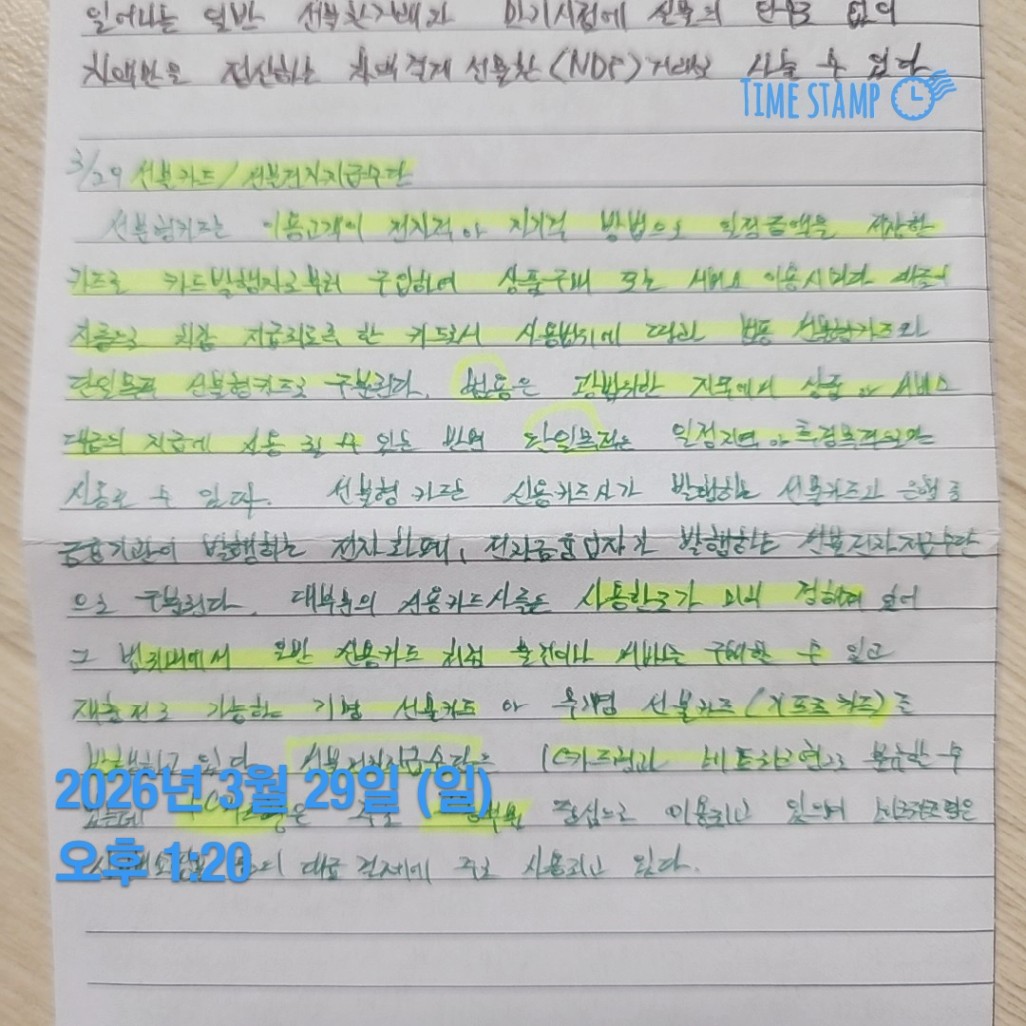 일어나는 일반 선물환거래과 만기시점에 실물의 인수도 없이
차액만을 정산하는 차액결제선물환(NDF)거래로 나눌 수 있다
TIME STAMP
3/29 선불카드/선불전자지급수단
선불형카드는 이용고객이 전자적 or 자기적 방법으로 일정금액을 저장한
카드로 카드발행자로부터 구입하여 상품구매 또는 서비스 이용시마다 대금이
자동으로 차감 지급되도록 한 카드로서 사용범위에 따라 범용 선불형카드와
단일목적 선불형카드로 구분된다. 범용은 광범위한 지역에서 상품 or 서비스
대금의 지급에 사용 될 수 있는 반면 단일목적은 일정지역 or 특정목적으로만
사용될 수 있다. 선불형 카드는 신용카드사가 발행하는 선불카드과 은행 등
금융기관이 발행하는 전자화폐, 전자금융업자가 발행하는 선불전자지급수단
으로 구분된다. 대부분의 신용카드사들은 사용한도가 미리 정해져 있어
그 범위내에서 일반 신용카드 처럼 물건이나 서비스를 구매할 수 있고
재충전도 가능하는 기명 선불카드 or 무기명 선불카드(기프트카드)를
발행하고 있다. 선불전자지급수단은 IC카드형과 네트워크형으로 구분할 수
있는데 IC카드형은 주로 중심으로 이용되고 있으며 네트워크형은
등의 대금 결제에 주로 사용되고 있다.
2026년 3월 29일 (일)
오후 1:20